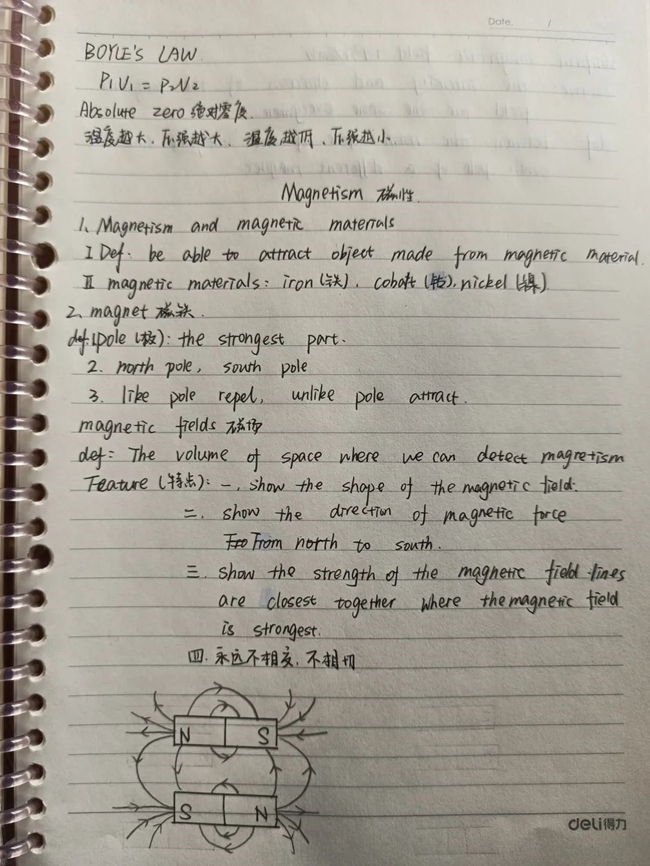 Date. /
BOYLE'S LAW
P₁V₁ = P₂V₂
Absolute zero 绝对零度.
温度越大.压强越大. 温度越低.压强越小.
Magnetism 磁性.
1、Magnetism and magnetic materials
I Def: be able to attract object made from magnetic material.
II magnetic materials: iron (铁). cobalt (钴). nickel (镍)
2、magnet 磁铁.
def: 1pole (极): the strongest part.
2. north pole, south pole
3. like pole repel, unlike pole attract.
magnetic fields 磁场
def: The volume of space where we can detect magnetism
Feature (特点): 一, show the shape of the magnetic field.
二. show the direction of magnetic force
From north to south.
三. show the strength of the magnetic field·lines
are closest together where the magnetic field
is strongest.
四. 永远不相交.不相切
N S
S N
deli得力